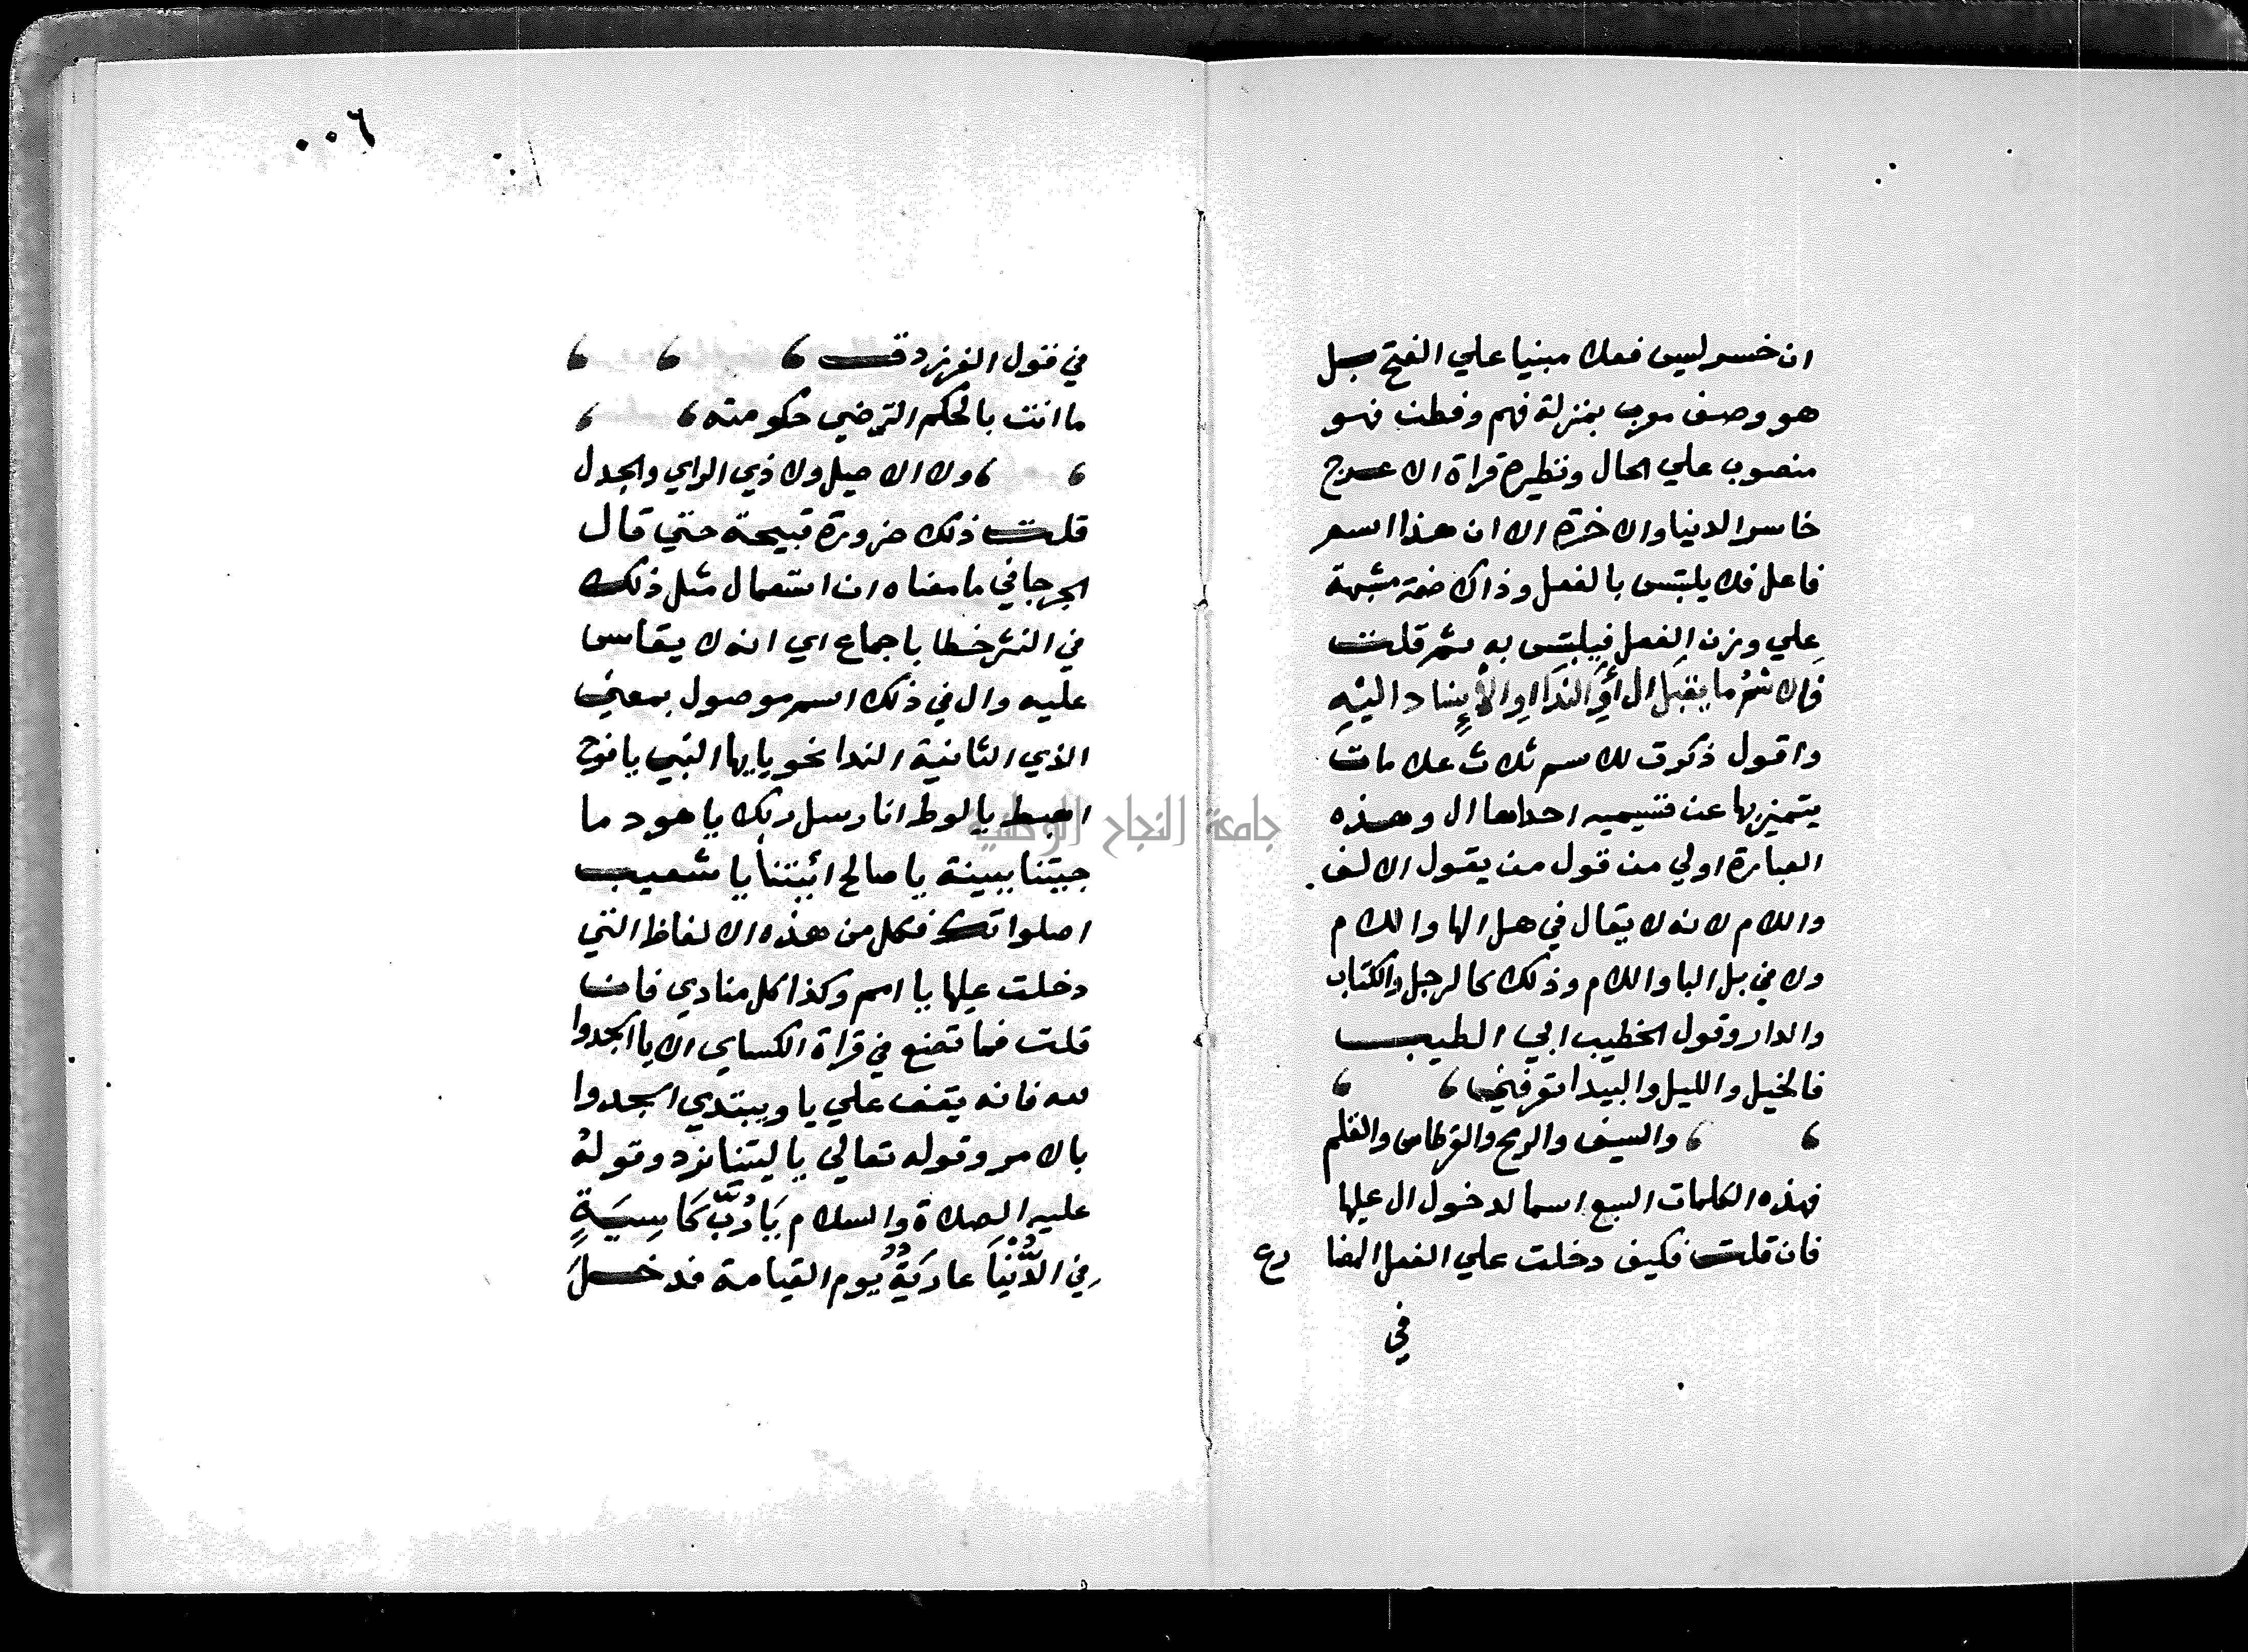 ان خسر ليس فعلا مبنيا علي الفتح بل
هو وصف معرب بمنزلة فهم وفطن فهو
منصوب علي الحال ونظيره قراة الاعرج
خاسر الدنيا والاخرة الا ان هذا اسم
فاعل فلا يلتبس بالفعل وذاك صفة مشبهة
علي وزن الفعل فيلتبس به ثم قلت
فالاسم ما يقبل ال أو الندا او الأسناد اليه
واقول ذكرت للاسم ثلاث علامات
يتميز بها عن قسيميه احداها ال وهذه
العبارة اولي من قول من يقول الالف
واللام لانه لا يقال في هل الها واللام
ولا في بل البا واللام وذلك كالرجل والكتاب
والدار وقول الخطيب ابي الطيب
فالخيل والليل والبيدا تعرفني
والسيف والرمح والقرطاس والقلم
فهذه الكلمات السبع اسما لدخول ال عليها
فان قلت فكيف دخلت علي الفعل المضا رع
في
٠٠٦
في قول الفرزدق
ما انت بالحكم الترضي حكومته
ولا الاصيل ولا ذي الراي والجدل
قلت ذلك ضرورة قبيحة حتي قال
الجرجاني ما معناه ان استعمال مثل ذلك
في النثر خطا باجماع اي انه لا يقاس
عليه وال في ذلك اسم موصول بمعني
الذي الثانية الندا نحو يايها النبي يا نوح
اهبط يا لوط انا رسل ربك يا هود ما
جيتنا ببينة يا صالح ائتنا يا شعيب
اصلواتك فكل من هذه الالفاظ التي
دخلت عليها يا اسم وكذا كل منادي فان
قلت فما تصنع في قراة الكساي الا يا اسجدوا
لله فانه يقف علي يا ويبتدي اسجدوا
بالامر وقوله تعالي يا ليتنا نرد وقوله
عليه الصلاة والسلام يَا رُبَّ كَاسِيَةٍ
في الدُّنْيَا عارية يوم القيامة فدخل
جامعة النجاح الوطنية